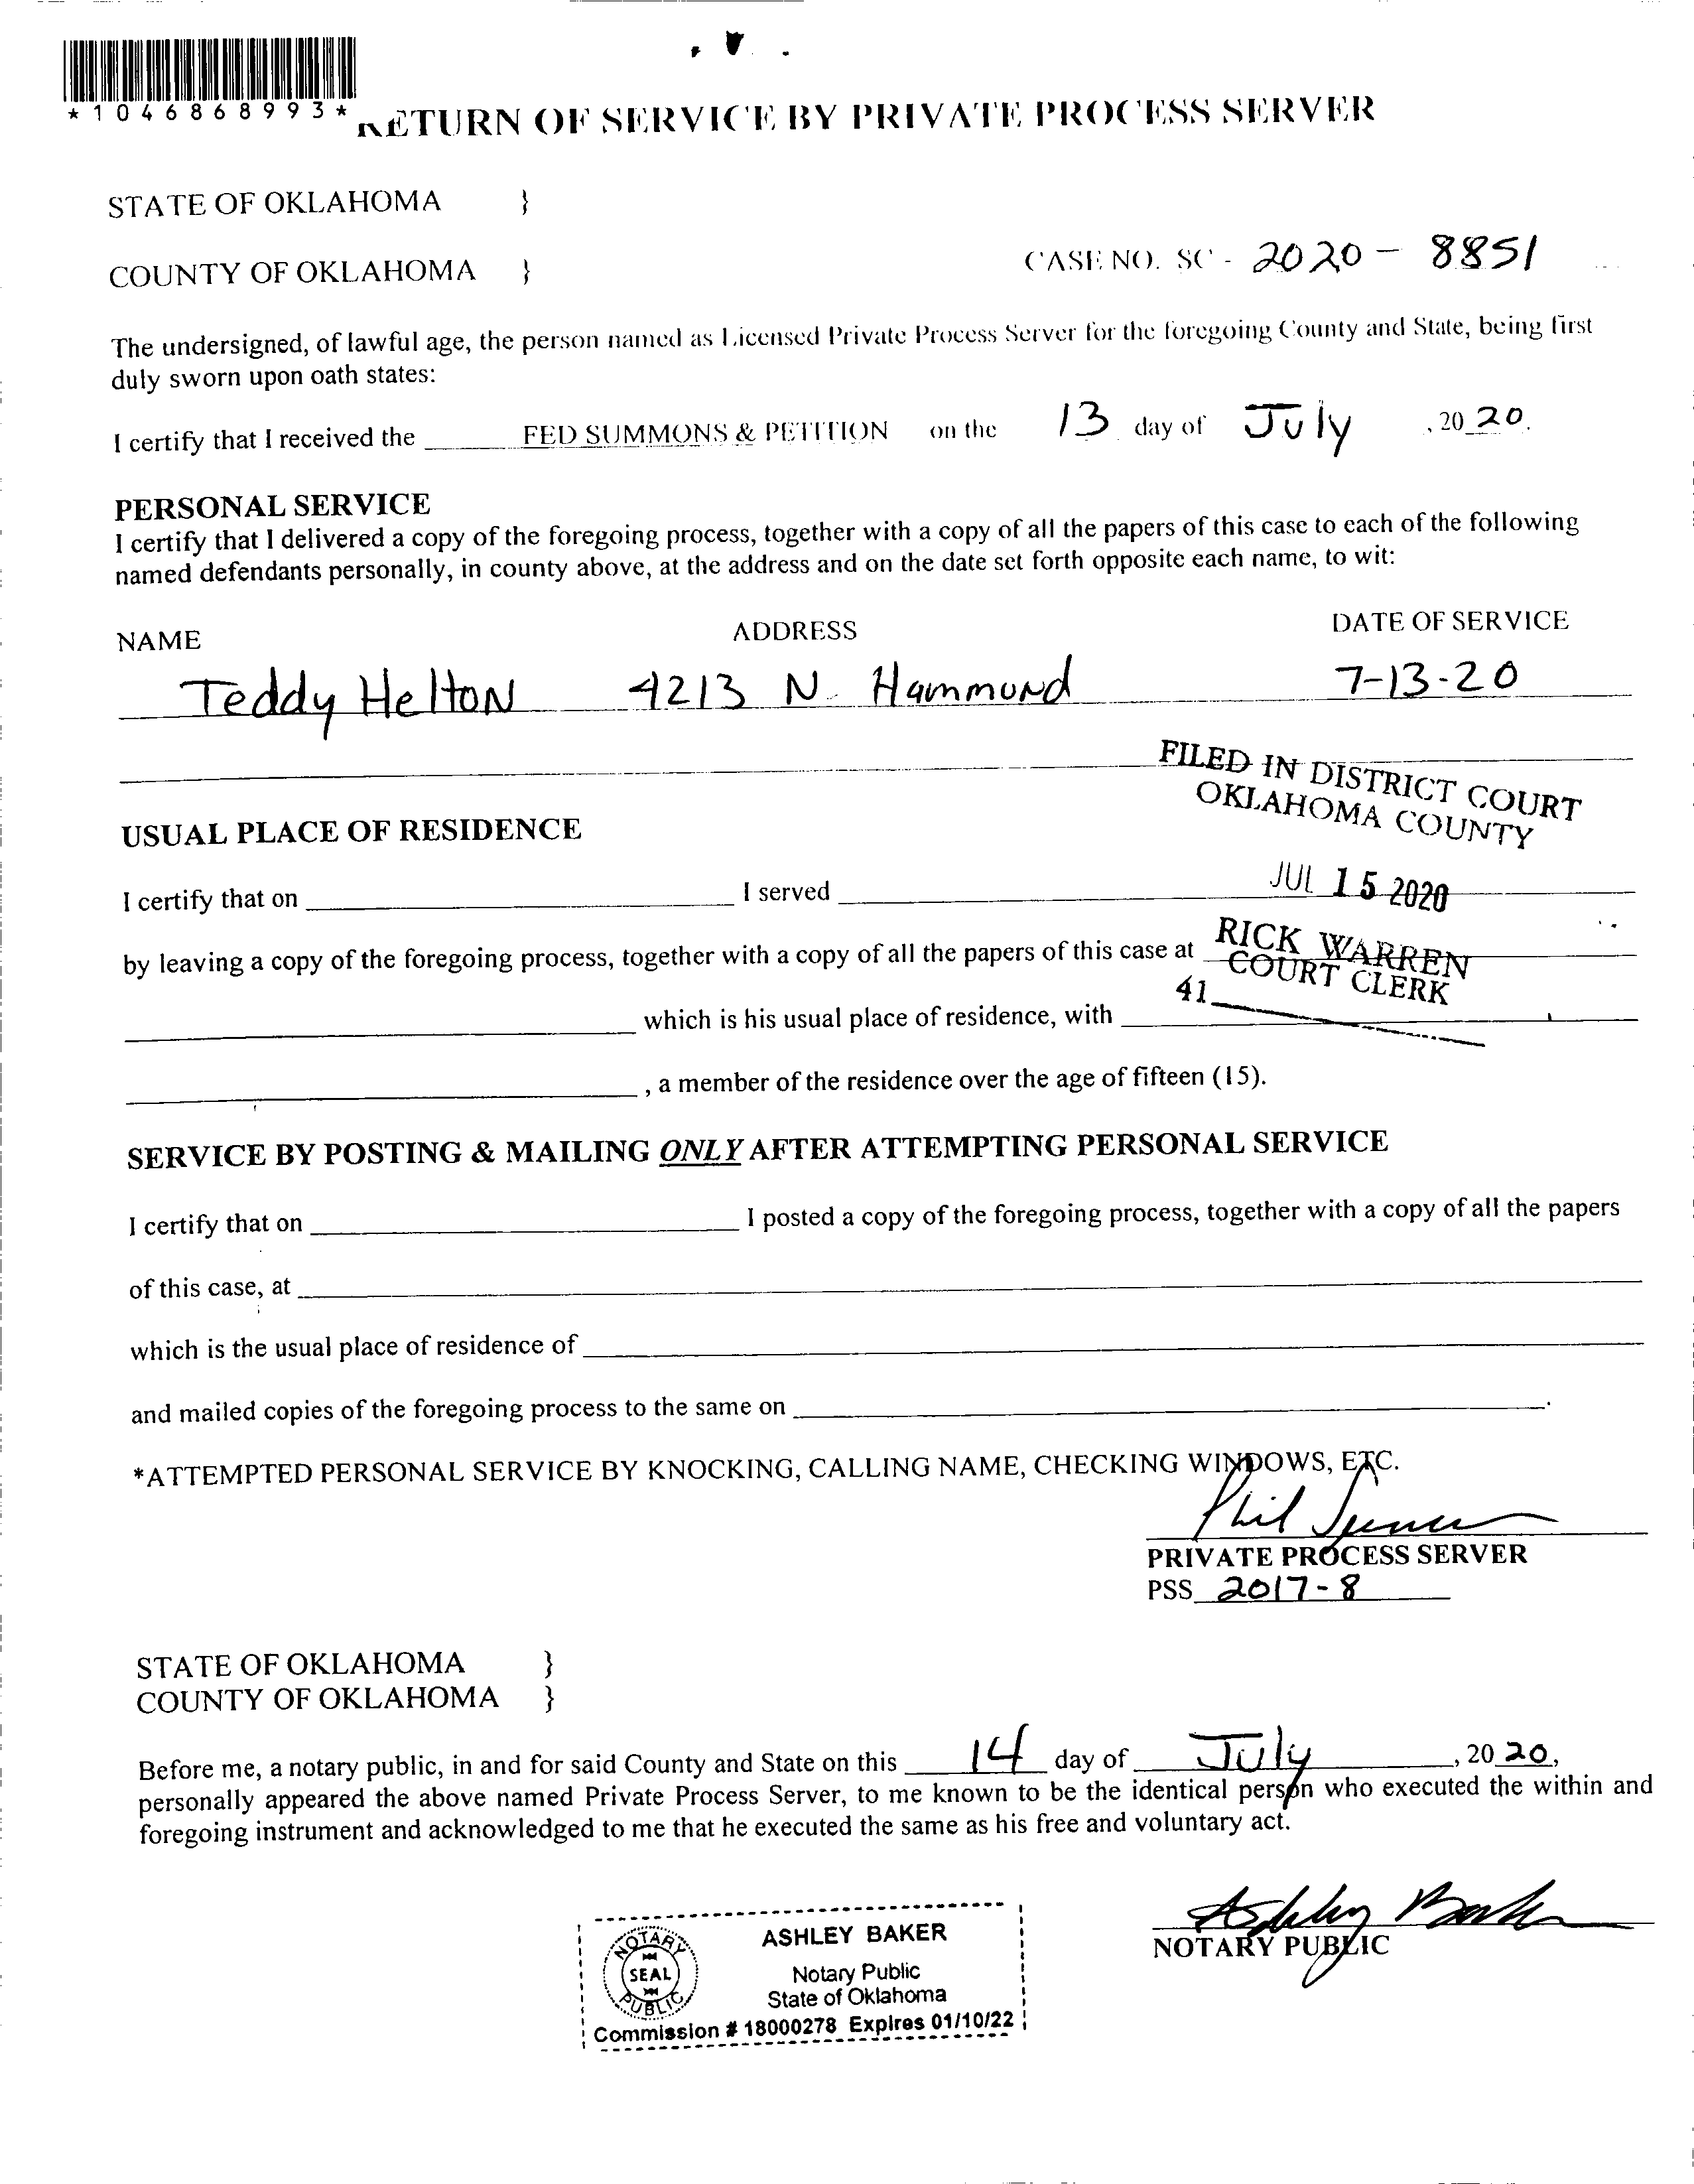 *1046868993*
RETURN OF SERVICE BY PRIVATE PROCESS SERVER
STATE OF OKLAHOMA }
COUNTY OF OKLAHOMA } CASE NO. SC - 2020 - 8851
The undersigned, of lawful age, the person named as Licensed Private Process Server for the foregoing County and State, being first
duly sworn upon oath states:
I certify that I received the FED SUMMONS & PETITION on the 13 day of July , 20 20.
PERSONAL SERVICE
I certify that I delivered a copy of the foregoing process, together with a copy of all the papers of this case to each of the following
named defendants personally, in county above, at the address and on the date set forth opposite each name, to wit:
NAME ADDRESS DATE OF SERVICE
Teddy Helton 4213 N. Hammond 7-13-20
FILED IN DISTRICT COURT
OKLAHOMA COUNTY
USUAL PLACE OF RESIDENCE
JUL 15 2020
I certify that on ____ I served ____
RICK WARREN
COURT CLERK
by leaving a copy of the foregoing process, together with a copy of all the papers of this case at ____
41____
____ which is his usual place of residence, with ____
____, a member of the residence over the age of fifteen (15).
SERVICE BY POSTING & MAILING ONLY AFTER ATTEMPTING PERSONAL SERVICE
I certify that on ____ I posted a copy of the foregoing process, together with a copy of all the papers
of this case, at ____
which is the usual place of residence of ____
and mailed copies of the foregoing process to the same on ____.
*ATTEMPTED PERSONAL SERVICE BY KNOCKING, CALLING NAME, CHECKING WINDOWS, ETC.
Phil Spencer
PRIVATE PROCESS SERVER
PSS 2017-8
STATE OF OKLAHOMA }
COUNTY OF OKLAHOMA }
Before me, a notary public, in and for said County and State on this 14 day of July , 20 20,
personally appeared the above named Private Process Server, to me known to be the identical person who executed the within and
foregoing instrument and acknowledged to me that he executed the same as his free and voluntary act.
Ashley Baker
NOTARY PUBLIC
NOTARY
SEAL
PUBLIC
ASHLEY BAKER
Notary Public
State of Oklahoma
Commission # 18000278 Expires 01/10/22